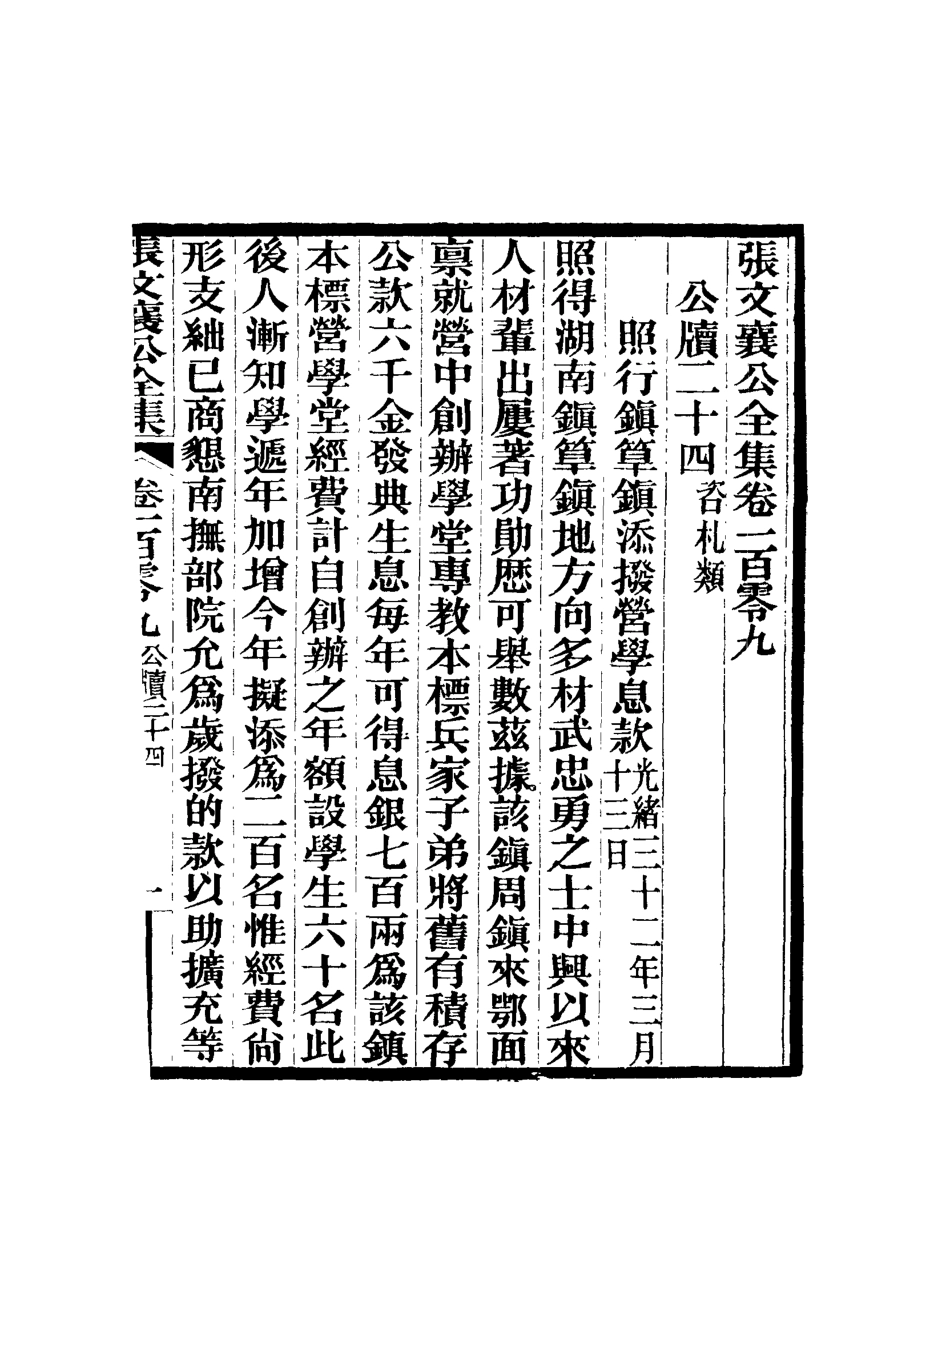 張文襄公全集卷一百零九
公牘二十四咨札類
照行鎮筸鎮添撥營學息款光緒三十二年三月
十三日
照得湖南鎮筸鎮地方向多材武忠勇之士中興以來
人材輩出屢著功勛歷可舉數茲據該鎮周鎮來鄂面
禀就營中創辦學堂專教本標兵家子弟將舊有積存
公款六千金發典生息每年可得息銀七百兩爲該鎮
本標營學堂經費計自創辦之年額設學生六十名此
後人漸知學遞年加增今年擬添爲二百名惟經費尙
形支絀已商懇南撫部院允爲歲撥的款以助擴充等
張文襄公全集 卷一百零九 公牘二十四 一